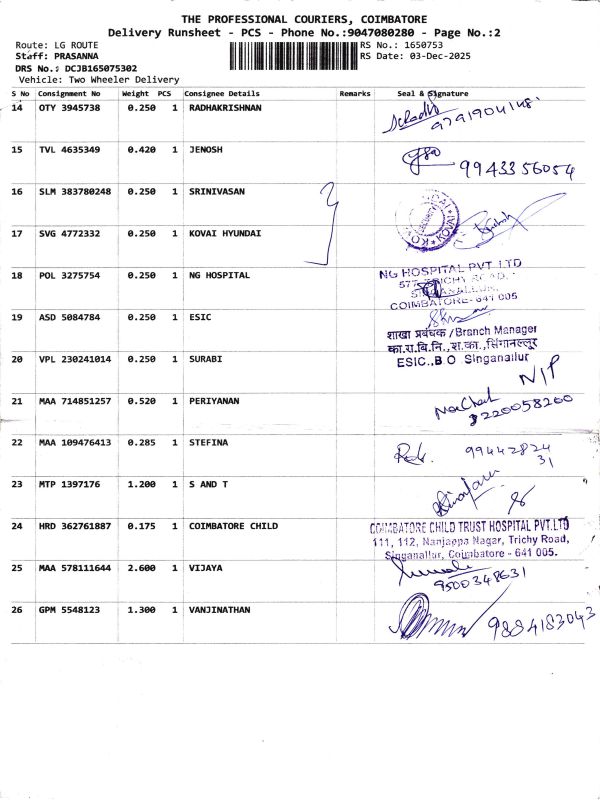 THE PROFESSIONAL COURIERS, COIMBATORE
Delivery Runsheet - PCS - Phone No.:9047080280 - Page No.:2
Route: LG ROUTE RS No.: 1650753
Staff: PRASANNA RS Date: 03-Dec-2025
DRS No.: DCJB165075302
Vehicle: Two Wheeler Delivery
S No Consignment No Weight PCS Consignee Details Remarks Seal & Signature
14 OTY 3945738 0.250 1 RADHAKRISHNAN
15 TVL 4635349 0.420 1 JENOSH 9943356054
16 SLM 383780248 0.250 1 SRINIVASAN
17 SVG 4772332 0.250 1 KOVAI HYUNDAI
18 POL 3275754 0.250 1 NG HOSPITAL
NG HOSPITAL PVT LTD
577, TRICHY ROAD,
SINGANALLUR,
COIMBATORE-641 005
19 ASD 5084784 0.250 1 ESIC
शाखा प्रबंधक / Branch Manager
का.रा.बि.नि., स.का., सिंगानल्लुर
ESIC., B.O Singanallur
20 VPL 230241014 0.250 1 SURABI N/P
21 MAA 714851257 0.520 1 PERIYANAN
8220058260
22 MAA 109476413 0.285 1 STEFINA 99442824
31
23 MTP 1397176 1.200 1 S AND T
24 HRD 362761887 0.175 1 COIMBATORE CHILD
COIMBATORE CHILD TRUST HOSPITAL PVT.LTD
111, 112, Nanjappa Nagar, Trichy Road,
Singanallur, Coimbatore - 641 005.
25 MAA 578111644 2.600 1 VIJAYA
9500348631
26 GPM 5548123 1.300 1 VANJINATHAN 9884183043